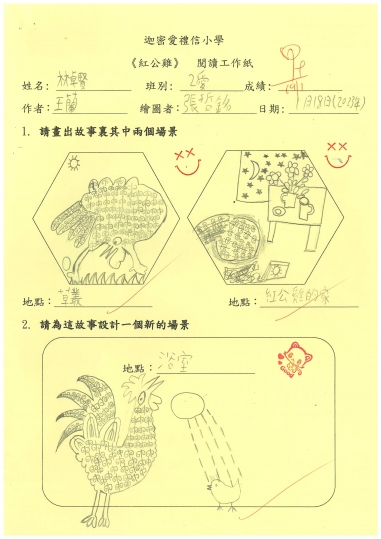 迦密愛禮信小學
《紅公雞》 閱讀工作紙
姓名: 林卓賢 班別: 2愛 成績:
作者: 王蘭 繪圖者: 張哲銘 日期: 1月19日(2023年)
1. 請畫出故事裏其中兩個場景
地點: 草叢 地點: 紅公雞的家
2. 請為這故事設計一個新的場景
地點: 浴室